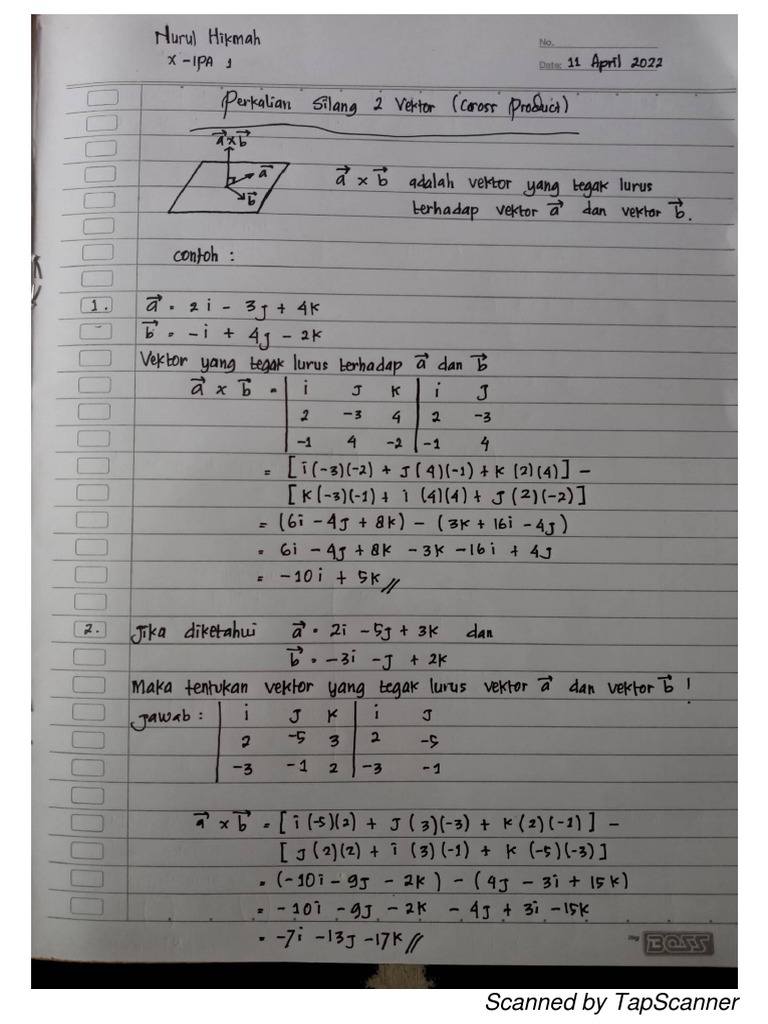 Nurul Hikmah
X - IPA 1
No.
Date: 11 April 2022
Perkalian Silang 2 Vektor (Coross Product)
a⃗ x b⃗
a⃗
b⃗
a⃗ x b⃗ adalah vektor yang tegak lurus
terhadap vektor a⃗ dan vektor b⃗.
contoh :
1. a⃗ = 2i - 3j + 4k
b⃗ = -i + 4j - 2k
Vektor yang tegak lurus terhadap a⃗ dan b⃗
a⃗ x b⃗ = | i j k | i j
| 2 -3 4 | 2 -3
| -1 4 -2 | -1 4
= [i(-3)(-2) + j(4)(-1) + k(2)(4)] -
[k(-3)(-1) + i(4)(4) + j(2)(-2)]
= (6i - 4j + 8k) - (3k + 16i - 4j)
= 6i - 4j + 8k - 3k - 16i + 4j
= -10i + 5k //
2. Jika diketahui a⃗ = 2i - 5j + 3k dan
b⃗ = -3i - j + 2k
Maka tentukan vektor yang tegak lurus vektor a⃗ dan vektor b⃗ !
Jawab : | i j k | i j
| 2 -5 3 | 2 -5
| -3 -1 2 | -3 -1
a⃗ x b⃗ = [i(-5)(2) + j(3)(-3) + k(2)(-1)] -
[j(2)(2) + i(3)(-1) + k(-5)(-3)]
= (-10i - 9j - 2k) - (4j - 3i + 15k)
= -10i - 9j - 2k - 4j + 3i - 15k
= -7i - 13j - 17k //
BOSS
Scanned by TapScanner